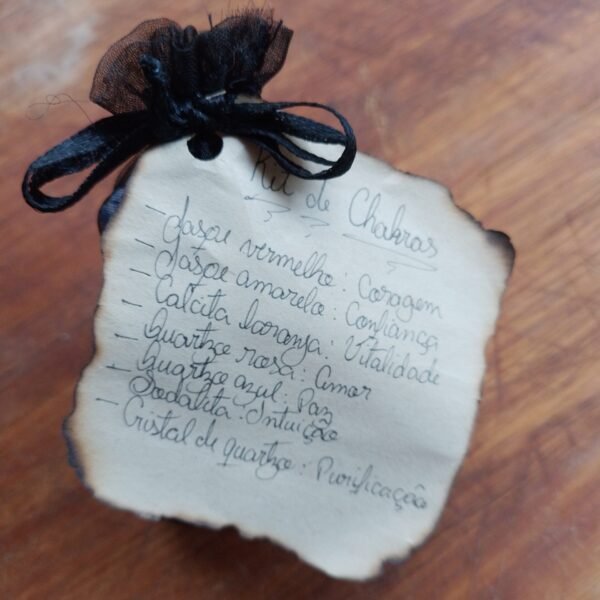 Kit de Chakras
- Jaspe vermelho: Coragem
- Jaspe amarelo: Confiança
- Calcita laranja: Vitalidade
- Quartzo rosa: Amor
- Quartzo azul: Paz
- Sodalita: Intuição
- Cristal de quartzo: Purificação